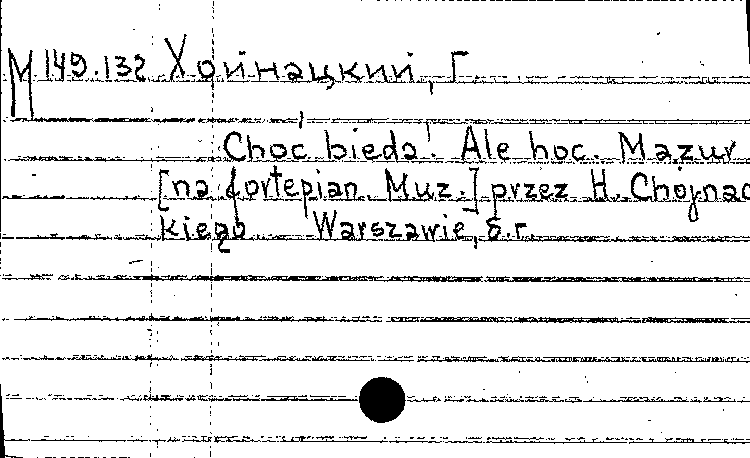 M 149.132 Хойнацкий, Г.
Choć bieda! Ale hoc. Mazur
[na fortepian. Muz.] przez H. Chojnac
kiego Warszawie, б.г.